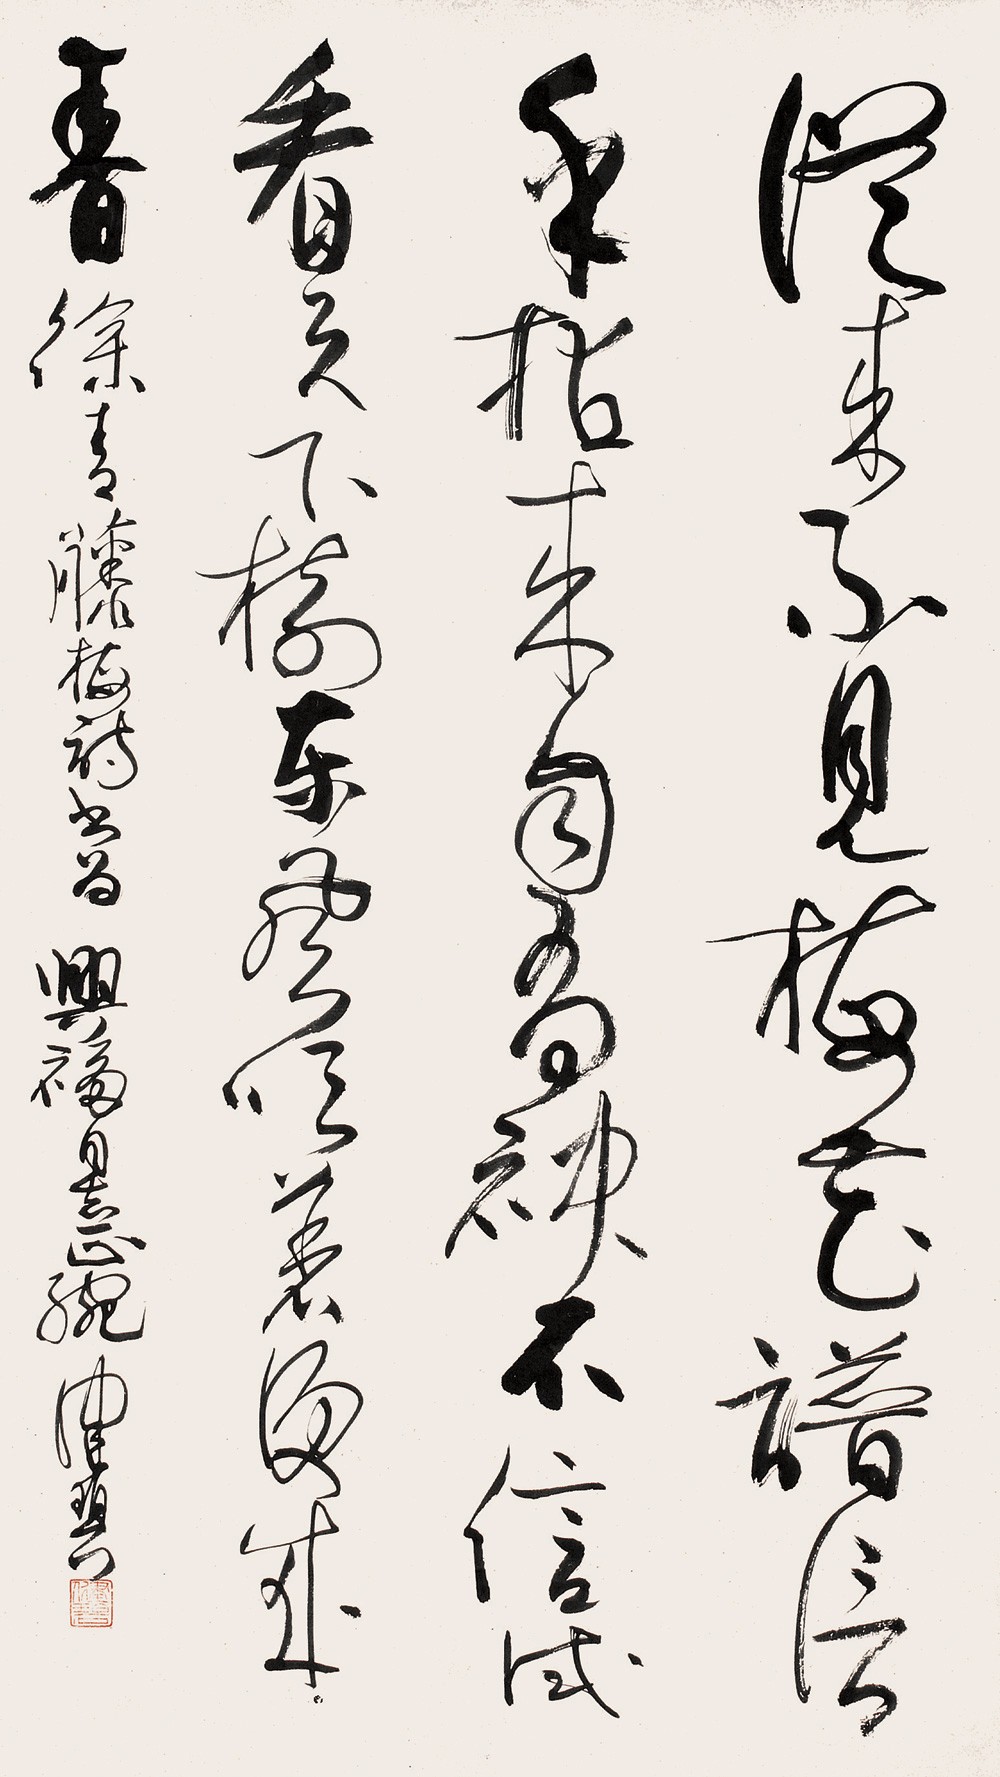 從來不見梅花譜信
手拈来自有神不信試
看天下樹東風吹著便成
春 徐青藤梅詩書为 興福是志正腕 陳